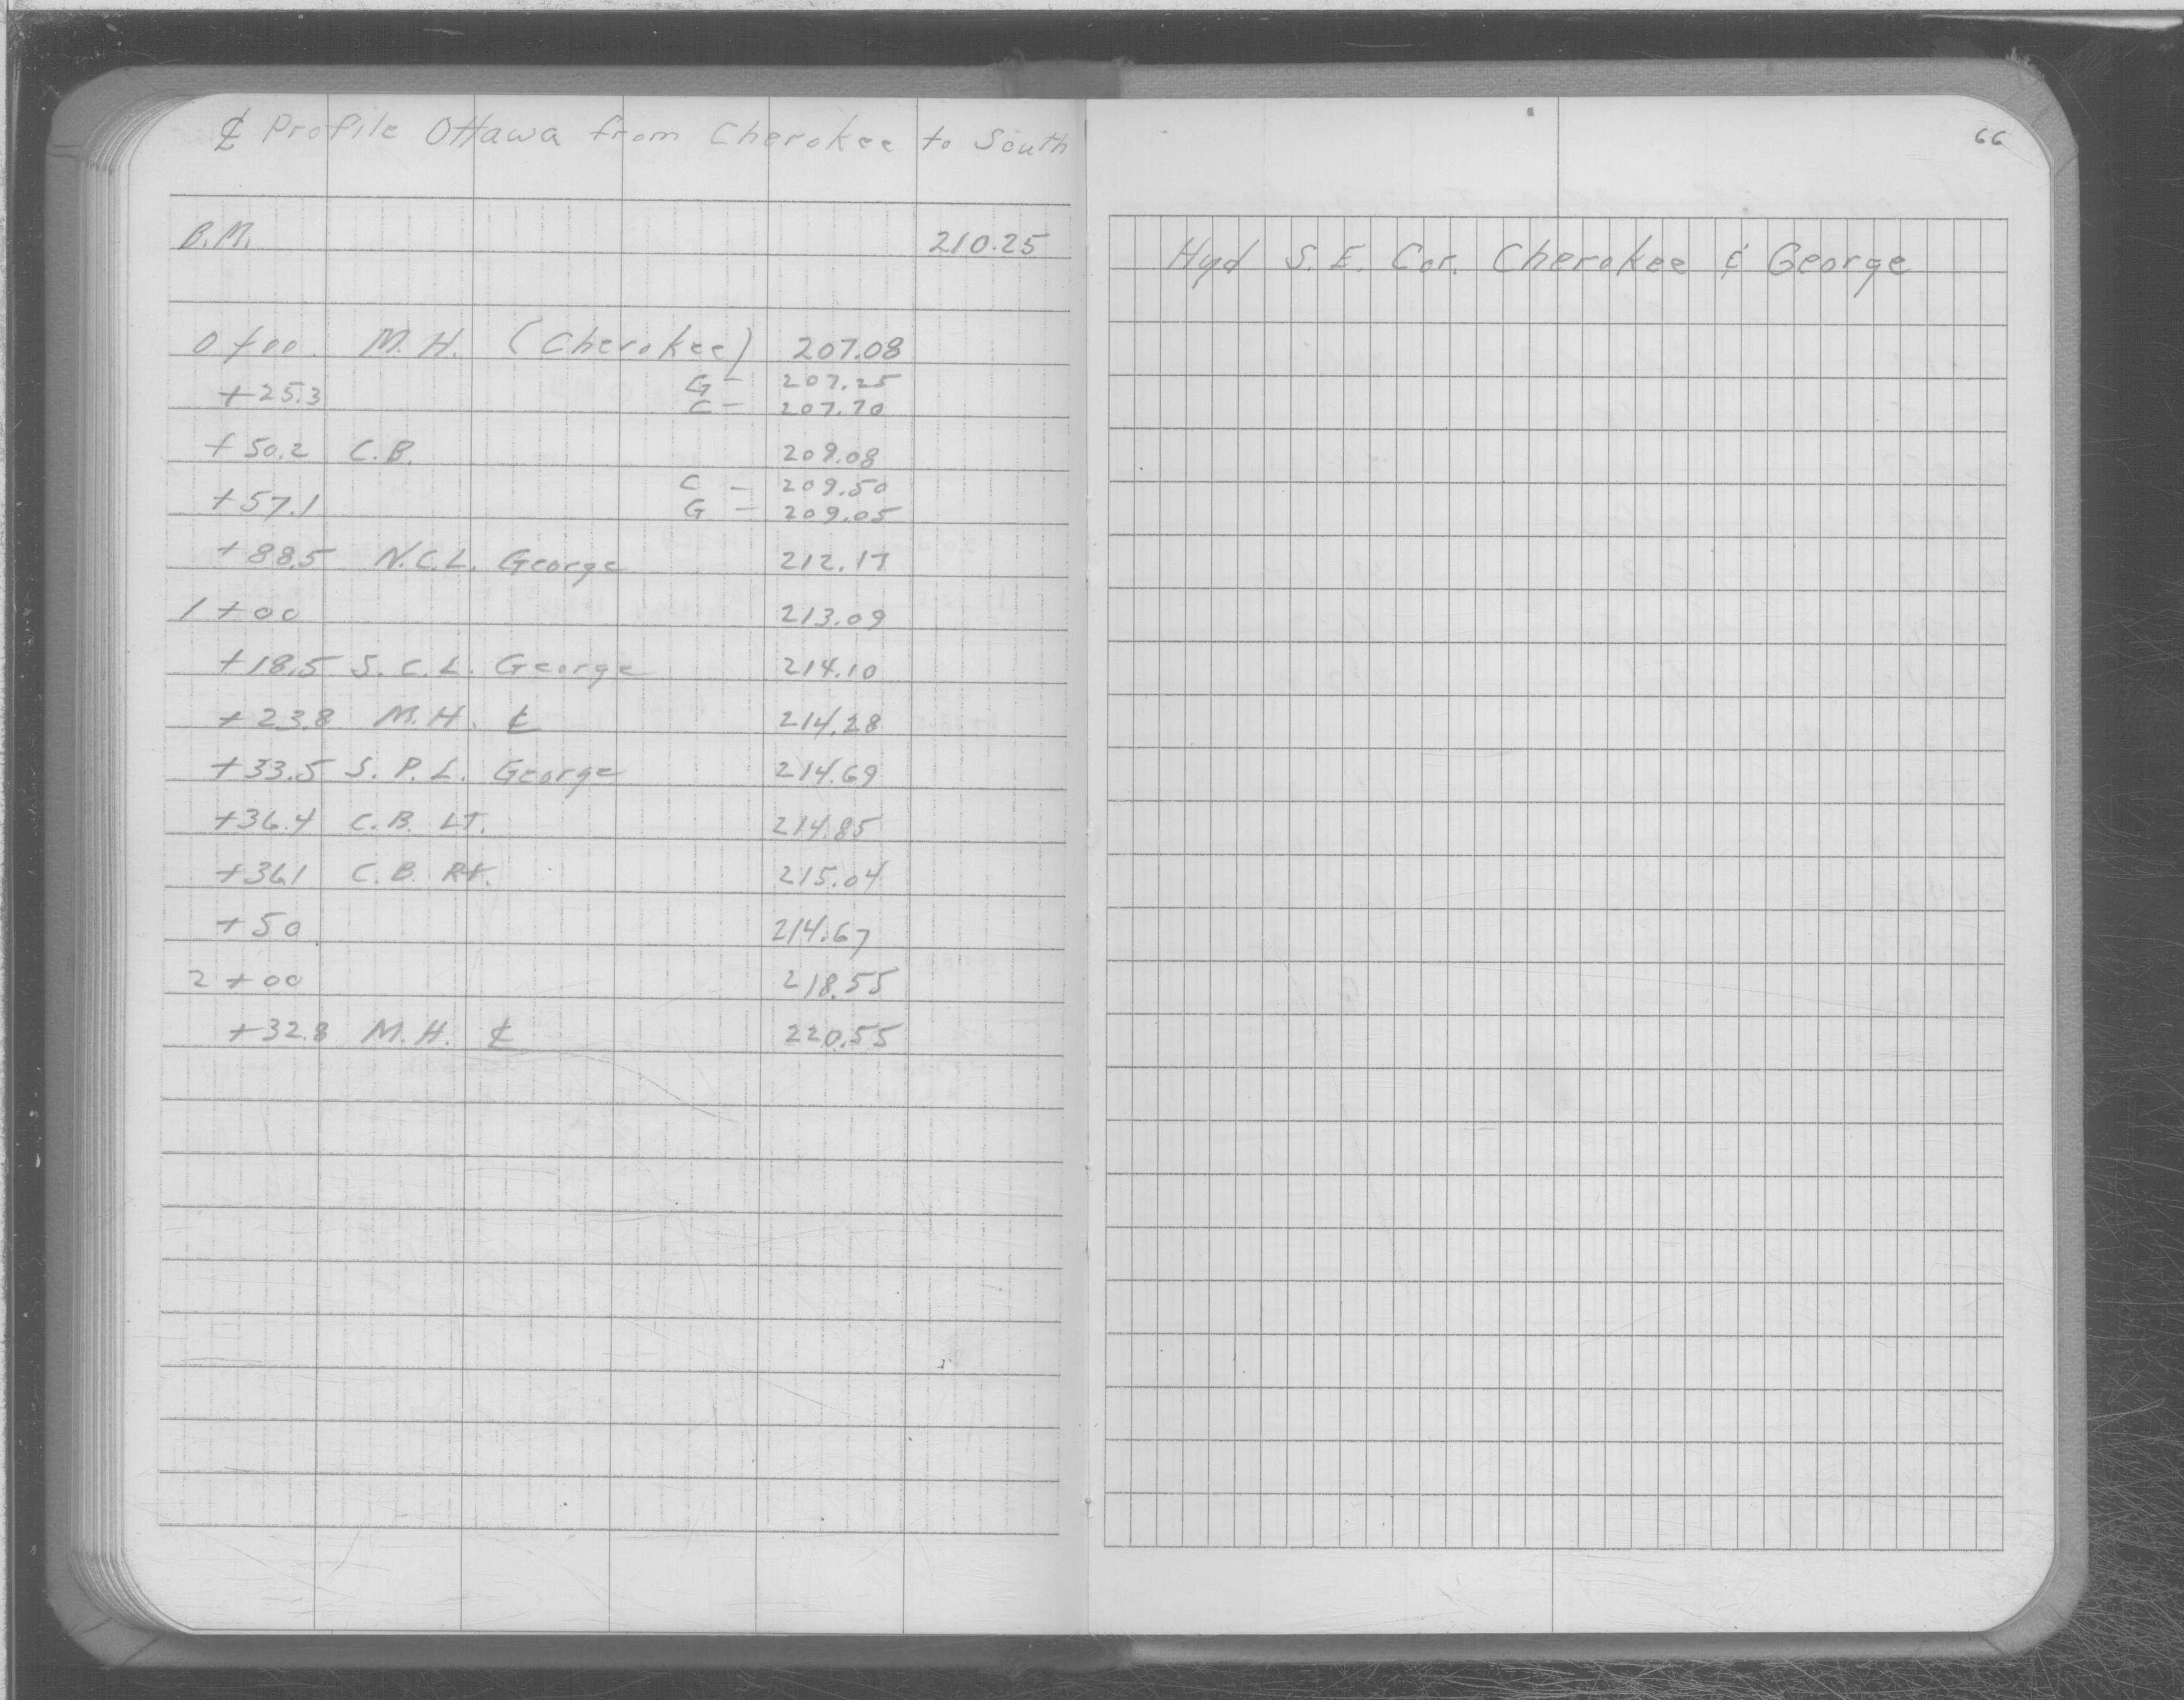 ℄ Profile Ottawa from Cherokee to South
B.M. 210.25
0+00 M.H. (Cherokee) 207.08
+25.3 G - 207.25
C - 207.70
+50.2 C.B. 209.08
+57.1 C - 209.50
G - 209.05
+88.5 N.C.L. George 212.17
1+00 213.09
+18.5 S.C.L. George 214.10
+23.8 M.H. ℄ 214.28
+33.5 S.P.L. George 214.69
+36.4 C.B. LT. 214.85
+36.1 C.B. Rt. 215.04
+50 214.67
2+00 218.55
+32.8 M.H. ℄ 220.55
66
Hyd S.E. Cor. Cherokee & George